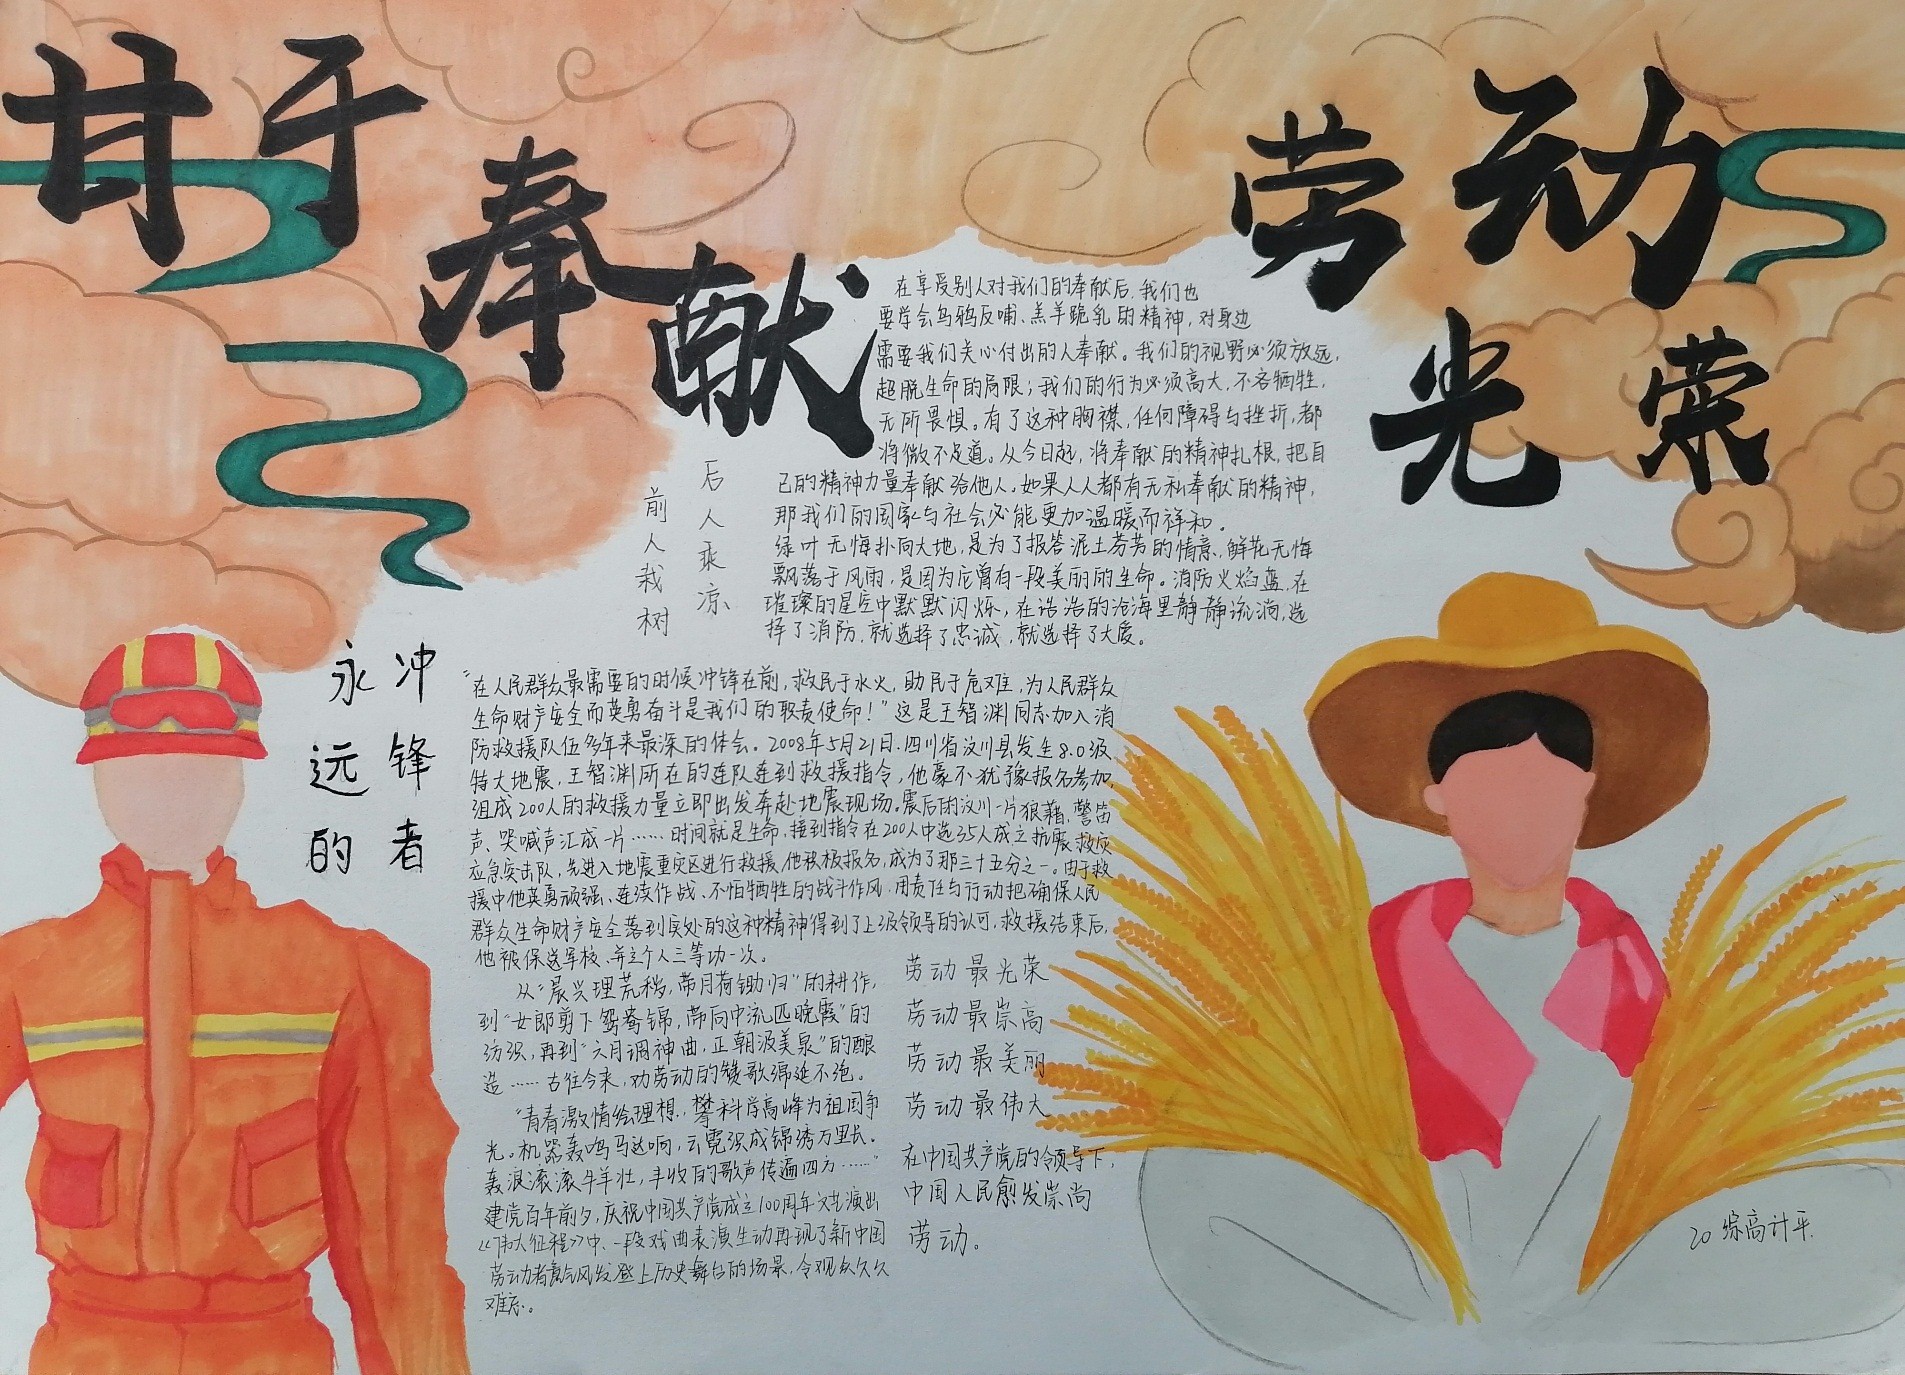 甘于
奉献
劳动
光荣
在享受别人对我们的奉献后，我们也
要学会乌鸦反哺、羔羊跪乳的精神，对身边
需要我们关心付出的人奉献。我们的视野必须放远，
超脱生命的局限；我们的行为必须高大，不吝牺牲，
无所畏惧。有了这种胸襟，任何障碍与挫折，都
将微不足道。从今日起，将奉献的精神扎根，把自
己的精神力量奉献给他人。如果人人都有无私奉献的精神，
那我们的国家与社会必能更加温暖而祥和。
绿叶无悔扑向大地，是为了报答泥土芬芳的情意，鲜花无悔
飘落于风雨，是因为它曾有一段美丽的生命。消防火焰蓝，在
璀璨的星空中默默闪烁，在浩浩的沧海里静静流淌，选
择了消防，就选择了忠诚，就选择了大爱。
前人栽树
后人乘凉
永远的
冲锋者
“在人民群众最需要的时候冲锋在前，救民于水火，助民于危难，为人民群众
生命财产安全而英勇奋斗是我们的职责使命！”这是王智渊同志加入消
防救援队伍多年来最深的体会。2008年5月21日，四川省汶川县发生8.0级
特大地震，王智渊所在的连队连到救援指令，他豪不犹豫报名参加，
组成200人的救援力量立即出发奔赴地震现场。震后的汶川一片狼藉，警笛
声、哭喊声汇成一片……时间就是生命，接到指令在200人中选35人成立抗震救灾
应急突击队，先进入地震重灾区进行救援，他积极报名，成为了那三十五分之一。由于救
援中他英勇顽强、连续作战、不怕牺牲的战斗作风，用责任与行动把确保人民
群众生命财产安全落到实处的这种精神得到了上级领导的认可，救援结束后，
他被保送军校、并立个人三等功一次。
从“晨兴理荒秽，带月荷锄归”的耕作，
到“女郎剪下鸳鸯锦，将向中流匹晚霞”的
纺织，再到“六月调神曲，正朝汲美泉”的酿
造……古往今来，对劳动的赞歌绵延不绝。
“青春激情绘理想，攀科学高峰为祖国争
光。机器轰鸣马达响，云霓织成锦绣万里长。
轰浪滚滚牛羊壮，丰收的歌声传遍四方……”
建党百年前夕，庆祝中国共产党成立100周年文艺演出
《伟大征程》中，一段戏曲表演生动再现了新中国
劳动者意气风发登上历史舞台的场景，令观众久久
难忘。
劳动最光荣
劳动最崇高
劳动最美丽
劳动最伟大
在中国共产党的领导下，
中国人民愈发崇尚
劳动。
20综高计平